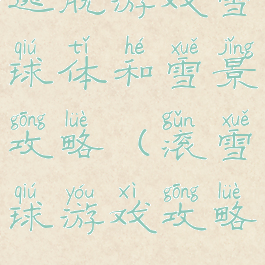 逃脱游戏雪
qiú tǐ hé xuě jǐng
球体和雪景
gōng lüè gǔn xuě
攻略（滚雪
qiú yóu xì gōng lüè
球游戏攻略